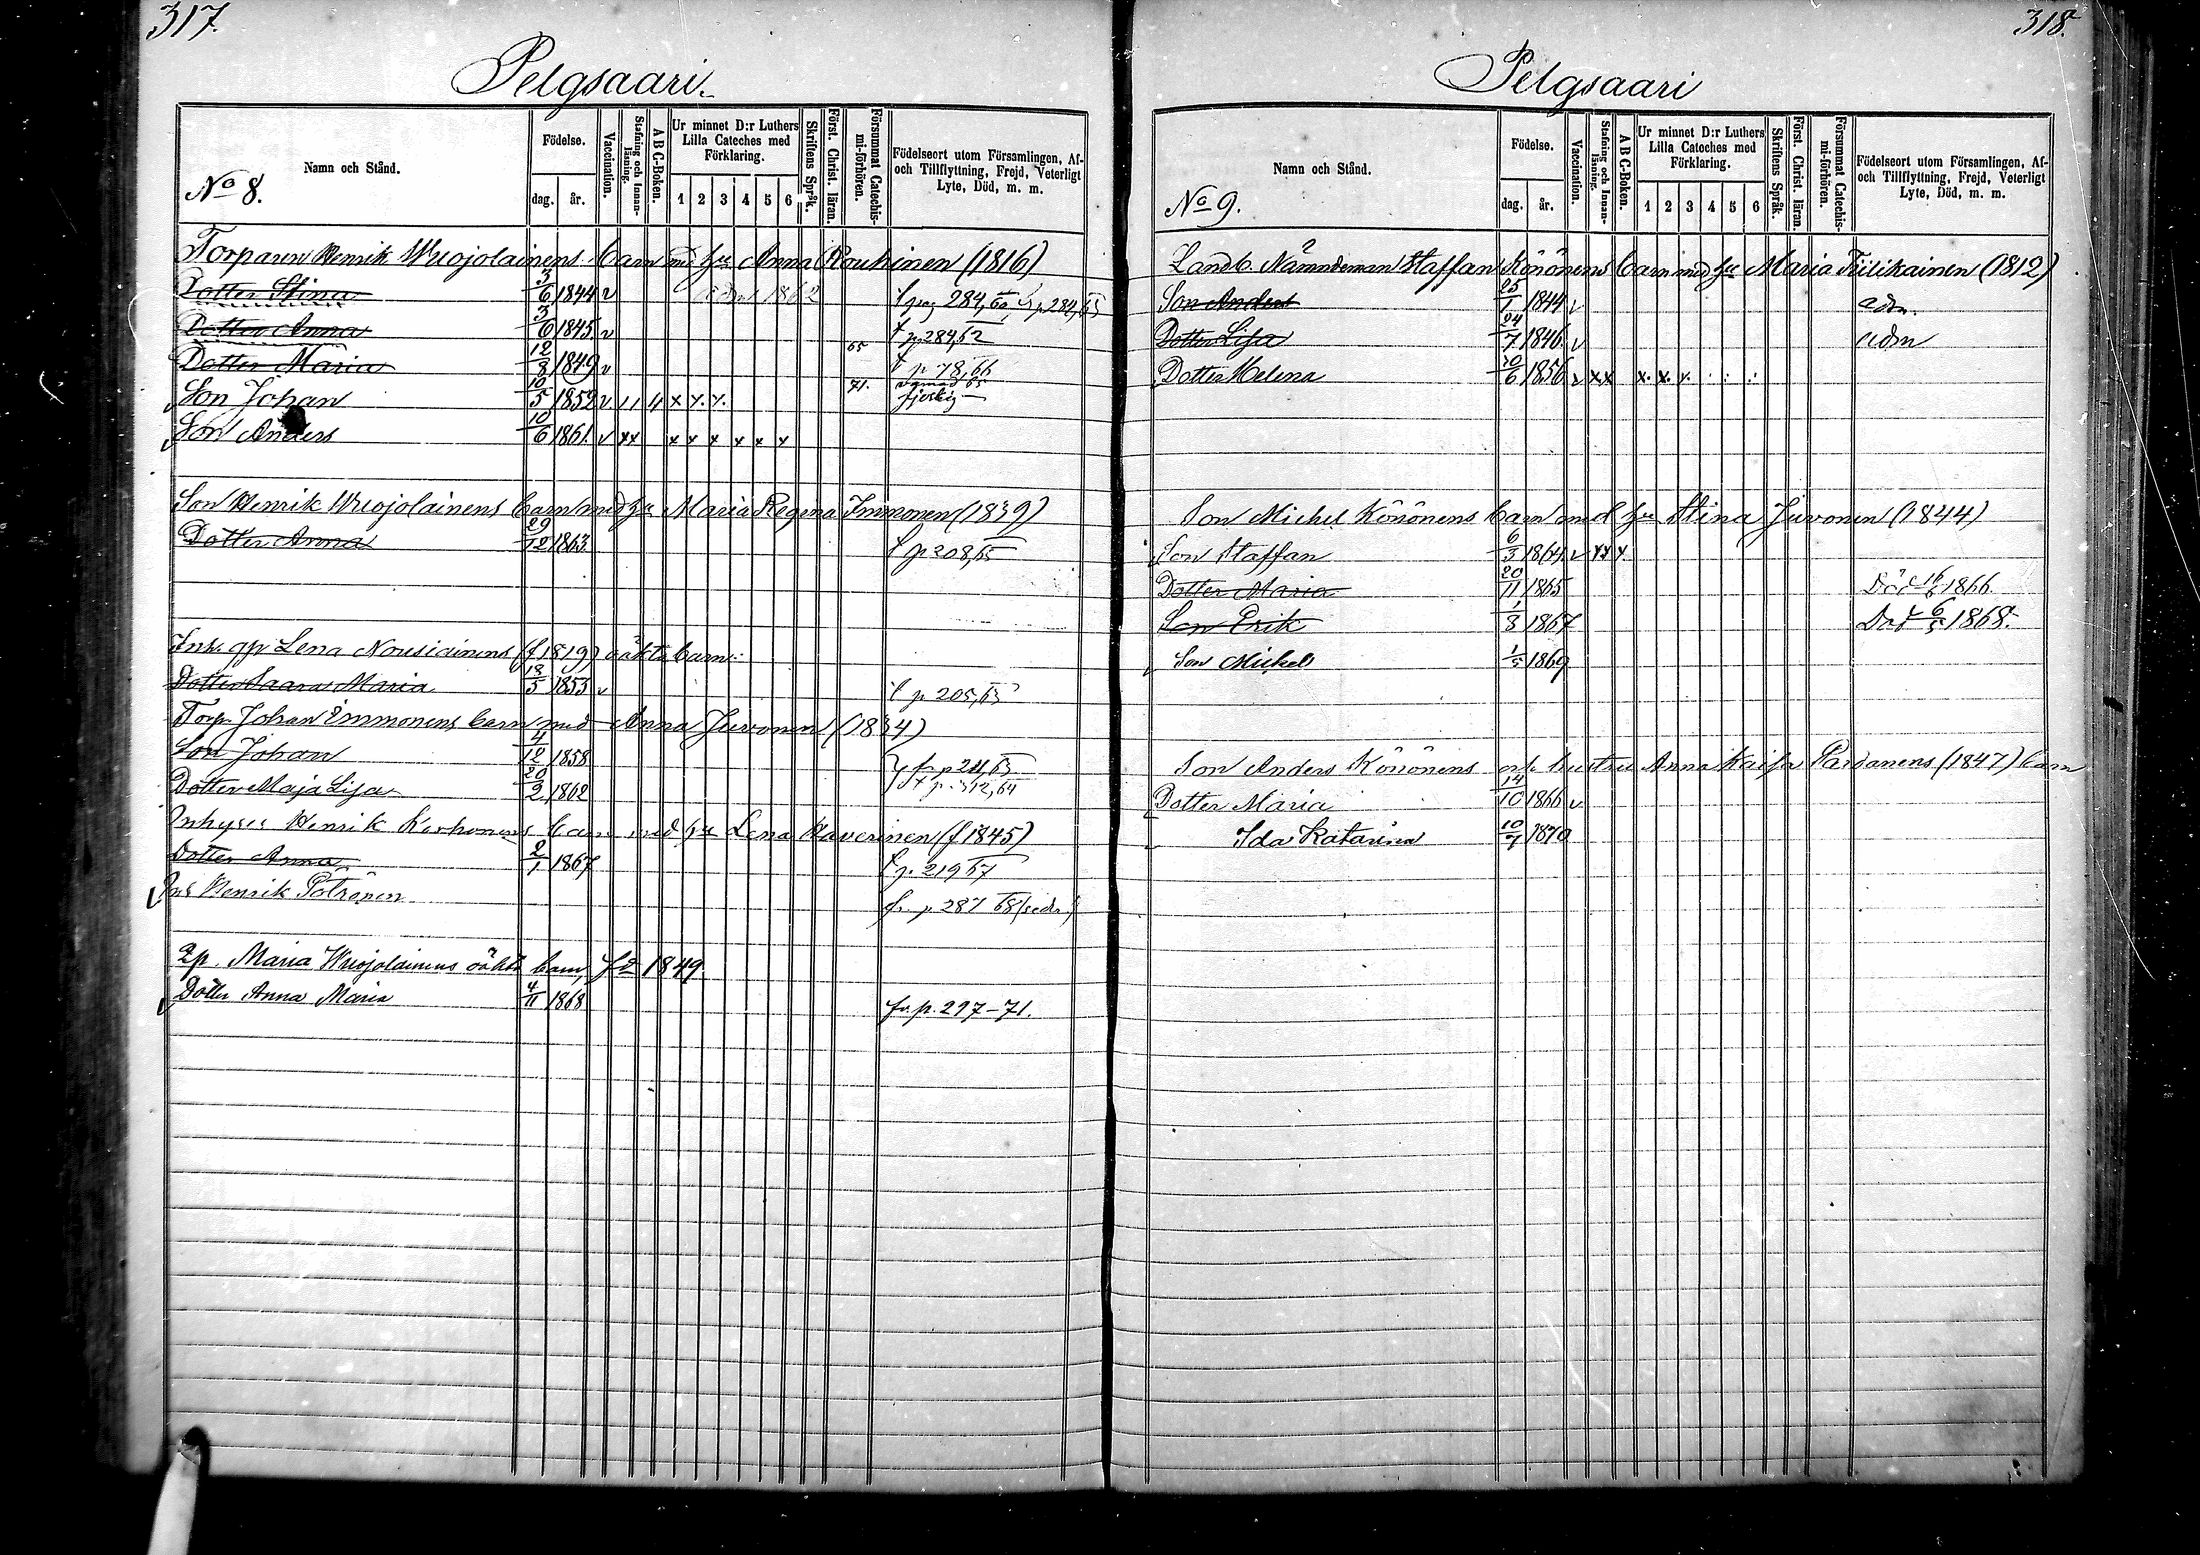 317.
Pelgsaari.
Namn och Stånd.
No 8.
Födelse.
dag. år.
Vaccination.
Stafning och Innanläsning.
A B C-Boken.
Ur minnet D:r Luthers Lilla Cateches med Förklaring.
1 2 3 4 5 6
Skriftens Språk.
Först. Christ. läran.
Försummat Catechismi-förhören.
Födelseort utom Församlingen, Af- och Tillflyttning, Frejd, Veterligt Lyte, Död, m. m.
Torparen Henrik Wuojolainens barn med hu Anna Rouhinen (1816)
Dotter Stina 3/6 1844 v adm 1862 284,60 p 284,63
Dotter Anna 3/6 1845 v p 284,62
Dotter Maria 12/8 1849 v 65 p 78,66
Son Johan 10/5 1852 v 11 4 x y. y. 71.
Son Anders 10/6 1861. v xx x x x x x x
Son Henrik Wuojolainens barn med hu Maria Regina Immonen (1839)
Dotter Anna 29/12 1863 p 208,65
Inh. qp Lena Nousiainens (f 1819) oäkta barn:
Dotter Saara Maria 13/5 1853 v p 205,63
Torp. Johan Immonens barn med Anna Juvonen (1834)
Son Johan 4/12 1858 fr p 211,63
Dotter Maja Lisa 20/2 1862 p. 312,64
Inhyses Henrik Korhonens barn med hu Lena Haverinen (f 1845)
Dotter Anna 2/1 1867 p. 219 67
Inh Henrik Pötrönen fr. p 287 68
Qp. Maria Wuojolainens oäkta barn, fd 1849.
Dotter Anna Maria 4/11 1868 fr. p. 297-71.
318.
Pelgsaari
Namn och Stånd.
No 9.
Födelse.
dag. år.
Vaccination.
Stafning och Innanläsning.
A B C-Boken.
Ur minnet D:r Luthers Lilla Cateches med Förklaring.
1 2 3 4 5 6
Skriftens Språk.
Först. Christ. läran.
Försummat Catechismi-förhören.
Födelseort utom Församlingen, Af- och Tillflyttning, Frejd, Veterligt Lyte, Död, m. m.
Landb. Nämndeman Staffan Könönens barn med hu Maria Tiilikainen (1812)
Son Anders 25/1 1844 v adm.
Dotter Lisa 24/7 1846 v adm
Dotter Helena 20/6 1856 v xx x. x. y.
Son Michel Könönens barn med hu Stina Juvonen (1844)
Son Staffan 6/3 1864 v xx x
Dotter Maria 20/11 1865 Död 16/6 1866.
Son Erik 1/3 1867 Död 6/5 1868.
Son Mickel 1/5 1869
Son Anders Könönens och hustru Anna Kaisa Pardanens (1847) barn
Dotter Maria 14/10 1866 v
Ida Katarina 10/7 1870